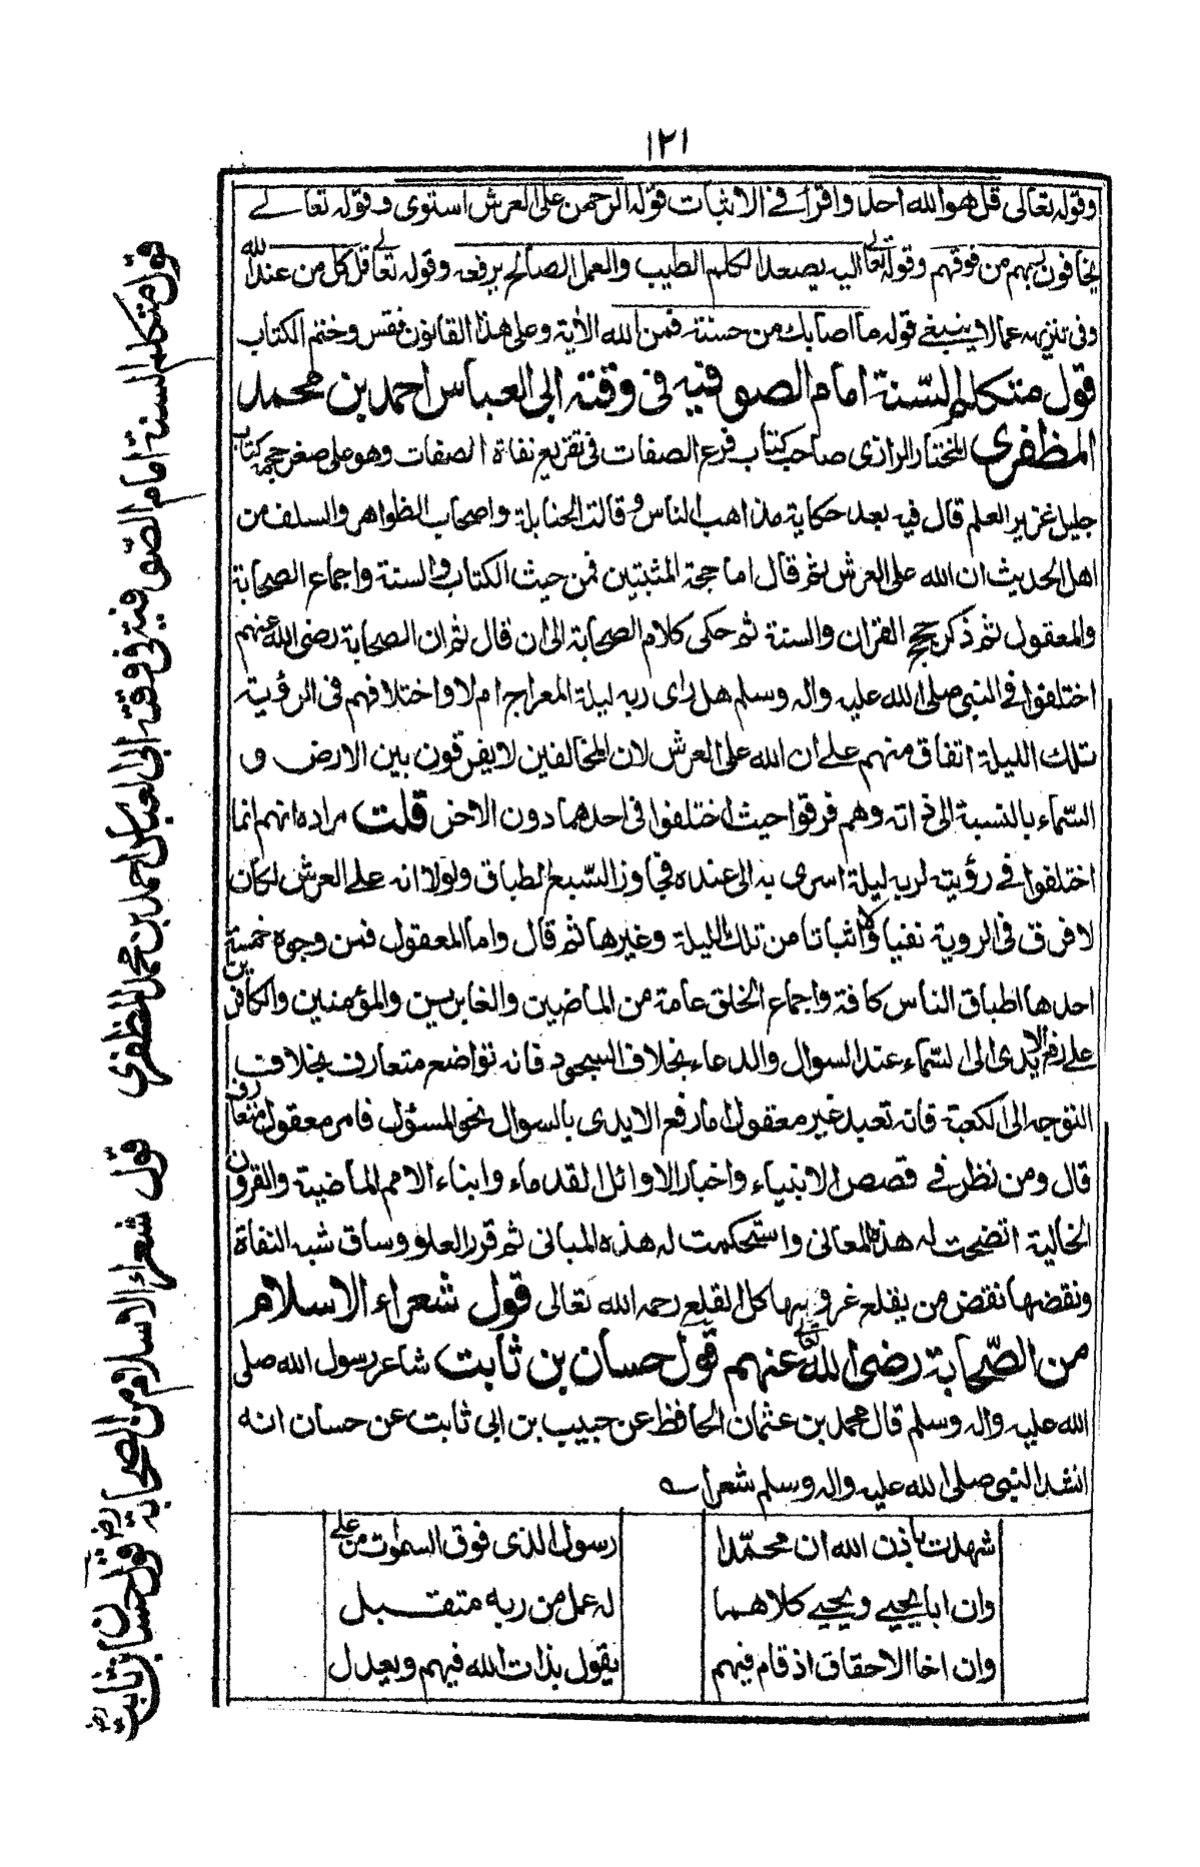 ١٢١
وقوله تعالى قل هو الله احد واقرأ في الاثبات قوله الرحمن على العرش استوى وقوله تعالے
يخافون ربهم من فوقهم وقوله تعالى اليه يصعد الكلم الطيب والعمل الصالح يرفعه وقوله تعالى قل كل من عند الله
وفي تنزيهه عما لا ينبغي قوله ما اصابك من حسنة فمن الله الآية وعلى هذا القانون فقس وختم الكتاب
قول متكلم السّنة امام الصوفية في وقته ابى العباس احمد بن محمد
المظفرى المختار الرازى صاحب كتاب فرع الصفات فى تقريع نفاة الصفات وهو على صغر حجمه كتاب
جليل غزير العلم قال فيه بعد حكاية مذاهب الناس وقالت الحنابلة واصحاب الظواهر والسلف من
اهل الحديث ان الله على العرش ثم قال اما حجة المثبتين فمن حيث الكتاب والسنة واجماع الصحابة
والمعقول ثم ذكر حجج القران والسنة ثم حكى كلام الصحابة الى ان قال ثم ان الصحابة رضى الله عنهم
اختلفوا في النبى صلى الله عليه واله وسلم هل راى ربه ليلة المعراج ام لا واختلافهم فى الرؤية
تلك الليلة اتفاق منهم علے ان الله على العرش لان المخالفين لا يفرقون بين الارض و
السّماء بالنسبة الى ذاته وهم فرقوا حيث اختلفوا فى احدهما دون الاخر قلت مراده انهم انما
اختلفوا في رؤيته لربه ليلة اسرى به الى عنده فجاوز السّبع الطباق ولولا انه علے العرش لكان
لا فرق فى الروية نفيا ولا اثباتا من تلك الليلة وغيرها ثم قال واما المعقول فمن وجوه خمسة
احدها اطباق الناس كافة واجماع الخلق عامة من الماضين والغابرين والمؤمنين والكافرين
علے رفع الايدى الى السّماء عند السوال والدعاء بخلاف السجود فانه تواضع متعارف بخلاف
التوجه الى الكعبة فانه تعبد غير معقول اما رفع الايدى بالسوال نحو المسئول فامر معقول متعارف
قال ومن نظر في قصص الانبياء واخبار الاوائل القدماء وانباء الامم الماضية والقرون
الخالية اتضحت له هذه المعانى واستحكمت له هذه المبانى ثم قرر العلو وساق شبه النفاة
ونقضها نقض من يقلع غروسها كل القلع رحمه الله تعالى قول شعراء الاسلام
من الصّحابة رضى الله تعالى عنهم قول حسان بن ثابت شاعر رسول الله صلى
الله عليه واله وسلم قال محمد بن عثمان الحافظ عن حبيب بن ابى ثابت عن حسان انه
انشد النبى صلى الله عليه واله وسلم شعرا ؎
شهدت باذن الله ان محمّدا رسول الذى فوق السموات من على
وان ابا يحيے ويحيے كلاهما له عمل من ربه متقبل
وان اخا الاحقاف اذ قام فيهم يقول بذات الله فيهم ويعدل
قول متكلم السنة امام الصّوفية فى وقته ابى العباس احمد بن محمد المظفرى
قول شعراء الاسلام من الصحابة رض قول حسان بن ثابت رض